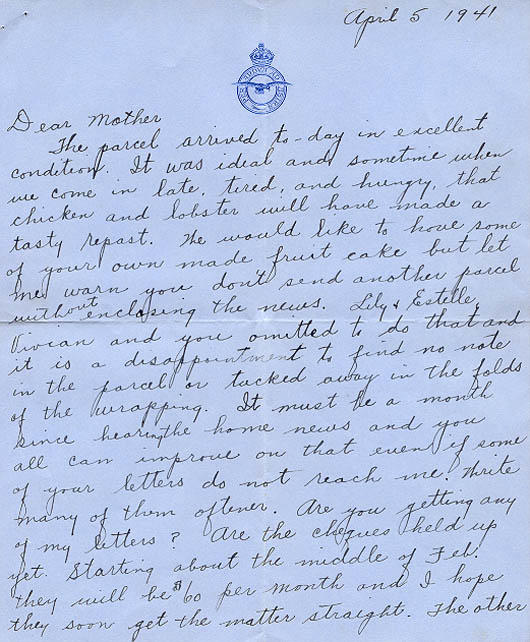 April 5 1941
PER ARDUA AD ASTRA
Dear Mother
The parcel arrived to-day in excellent
condition. It was ideal and sometime when
we come in late, tired, and hungry, that
chicken and lobster will have made a
tasty repast. We would like to have some
of your own made fruit cake but let
me warn you don't send another parcel
without enclosing the news. Lily & Estelle,
Vivian and you omitted to do that and
it is a disappointment to find no note
in the parcel or tucked away in the folds
of the wrapping. It must be a month
since hearing the home news and you
all can improve on that even if some
of your letters do not reach me. Write
many of them oftener. Are you getting any
of my letters? Are the cheques held up
yet. Starting about the middle of Feb.
they will be $60 per month and I hope
they soon get the matter straight. The other